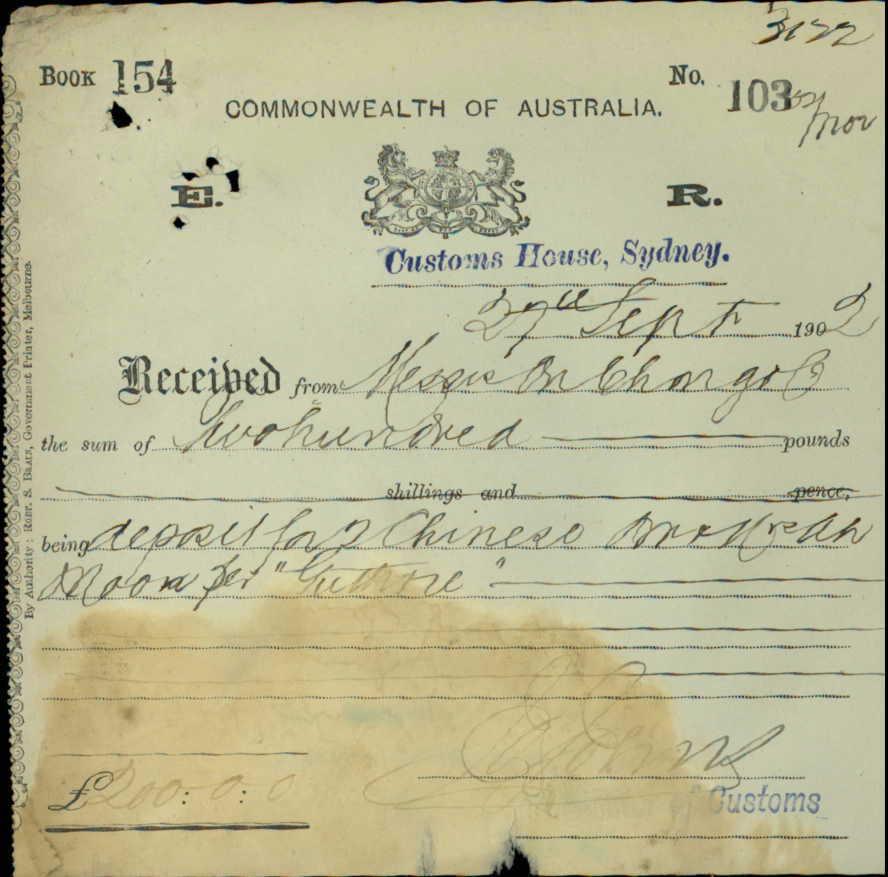 3122
BOOK 154
No. 103
COMMONWEALTH OF AUSTRALIA.
E. R.
Customs House, Sydney.
27th Sept 1902
Received from Messrs On Chong & Co
the sum of Two hundred pounds
shillings and pence,
being deposit for 2 Chinese Mr & Mrs Ah
Moon per "Guthrie"
£200:0:0
of Customs
By Authority: ROBT. S. BRAIN, Government Printer, Melbourne.